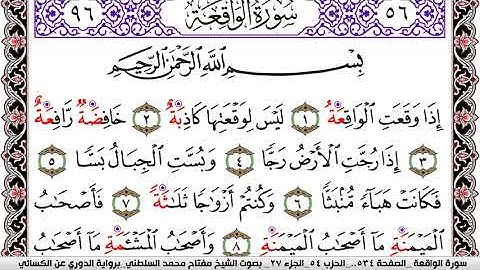 ٩٦ سُورَةُ الوَاقِعَةِ ٥٦
بِسْمِ اللَّهِ الرَّحْمَٰنِ الرَّحِيمِ
إِذَا وَقَعَتِ الْوَاقِعَةُ ١ لَيْسَ لِوَقْعَتِهَا كَاذِبَةٌ ٢ خَافِضَةٌ رَّافِعَةٌ
٣ إِذَا رُجَّتِ الْأَرْضُ رَجًّا ٤ وَبُسَّتِ الْجِبَالُ بَسًّا ٥
فَكَانَتْ هَبَاءً مُّنْبَثًّا ٦ وَكُنتُمْ أَزْوَاجًا ثَلَاثَةً ٧ فَأَصْحَابُ
الْمَيْمَنَةِ مَا أَصْحَابُ الْمَيْمَنَةِ ٨ وَأَصْحَابُ الْمَشْئَمَةِ مَا أَصْحَابُ
سورة الواقعة_ الصفحة ٥٣٤.. الحزب ٥٤_الجزء ٢٧_ بصوت الشيخ مفتاح محمد السلطني_برواية الدوري عن الكسائي